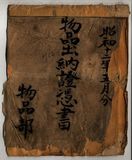 昭和十二年五月分
物品出納證憑書
物品部